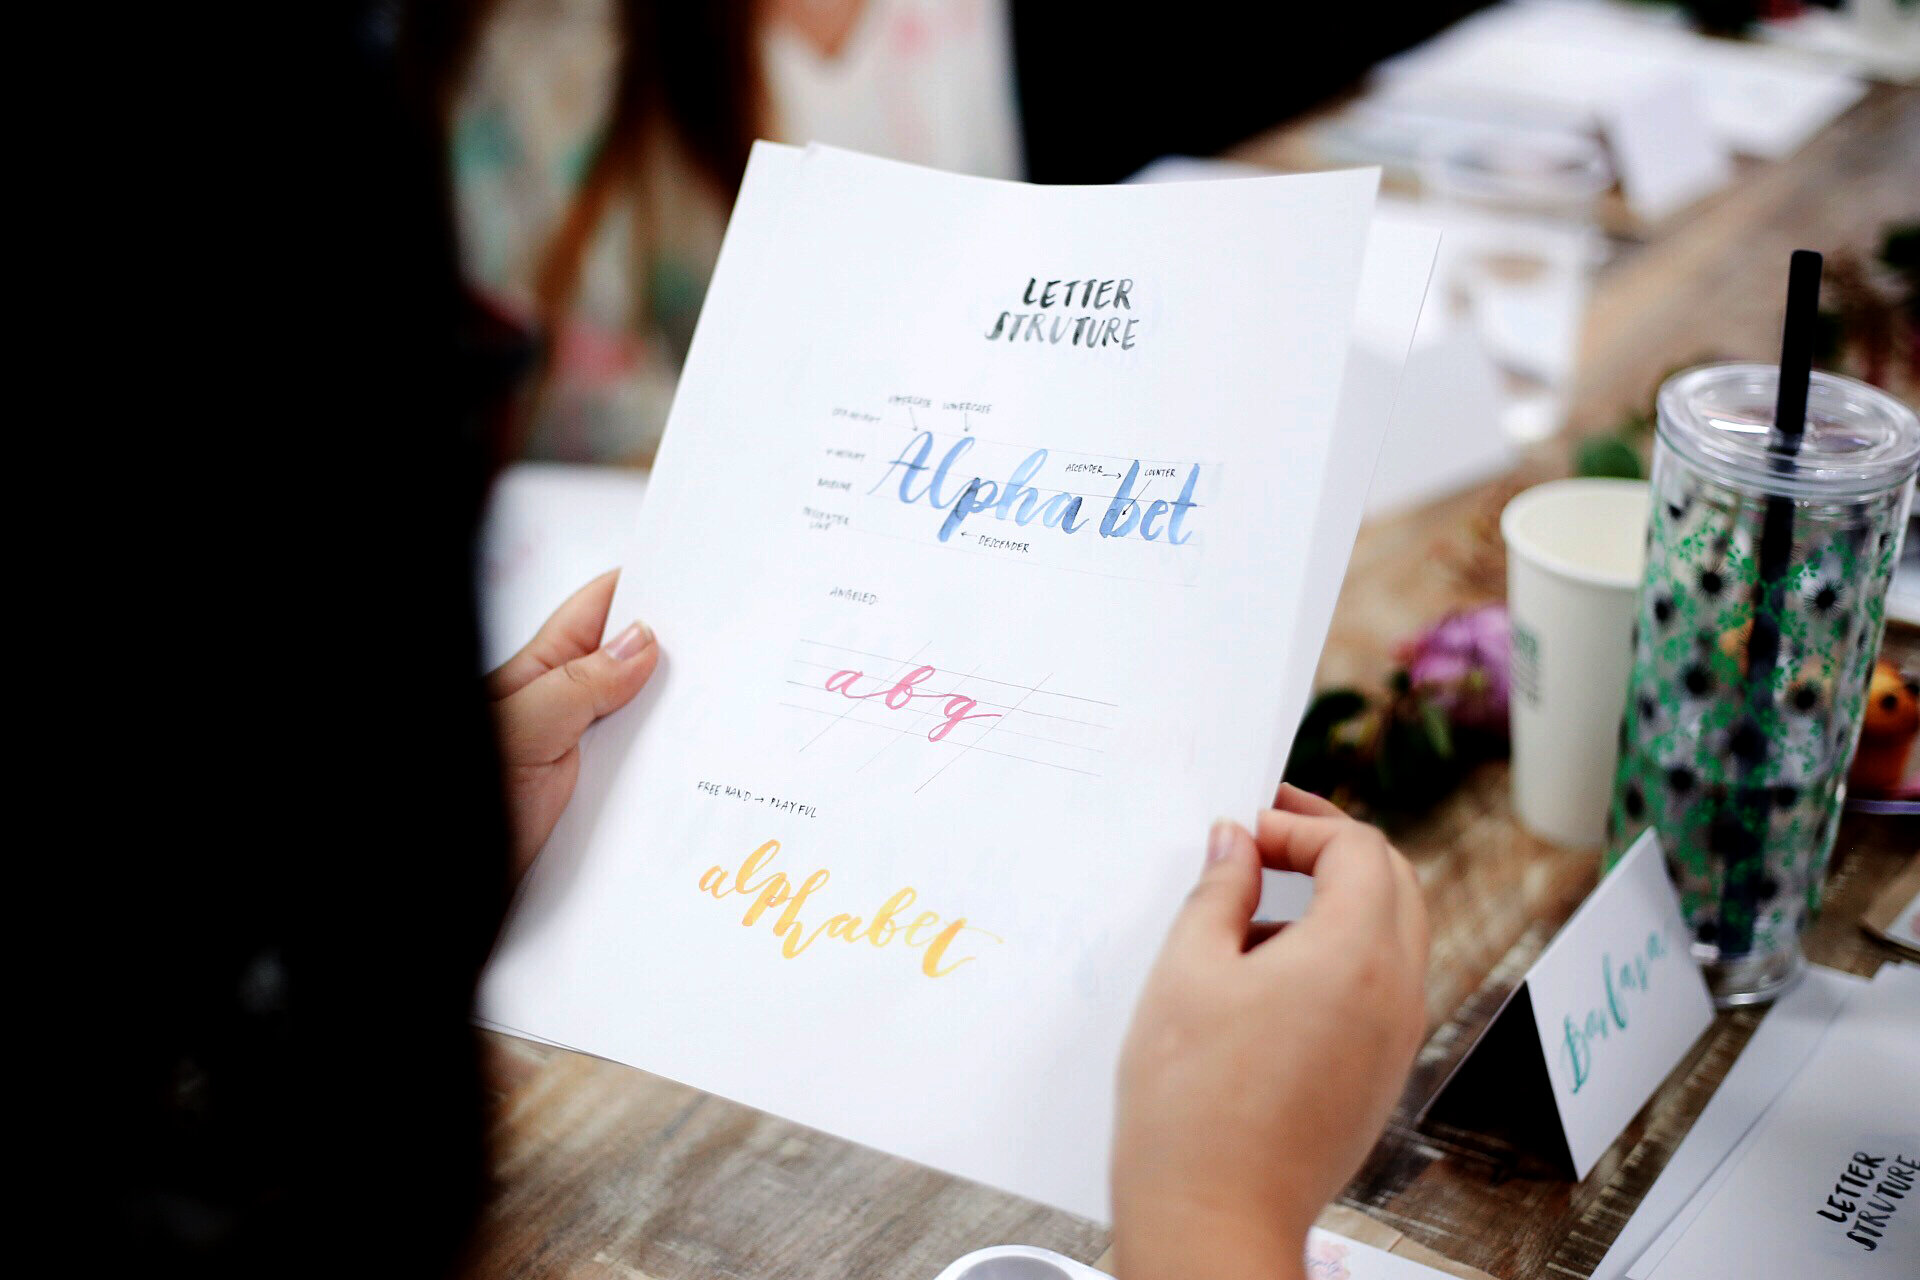 LETTER
STRUTURE
UPPERCASE LOWERCASE
CAP HEIGHT
X-HEIGHT
BASELINE
DESCENTER
LINE
Alphabet
ASCENDER →
COUNTER
← DESCENDER
ANGELED:
abg
FREE HAND → PLAYFUL
alphabet
Barbara
LETTER
STRUTURE